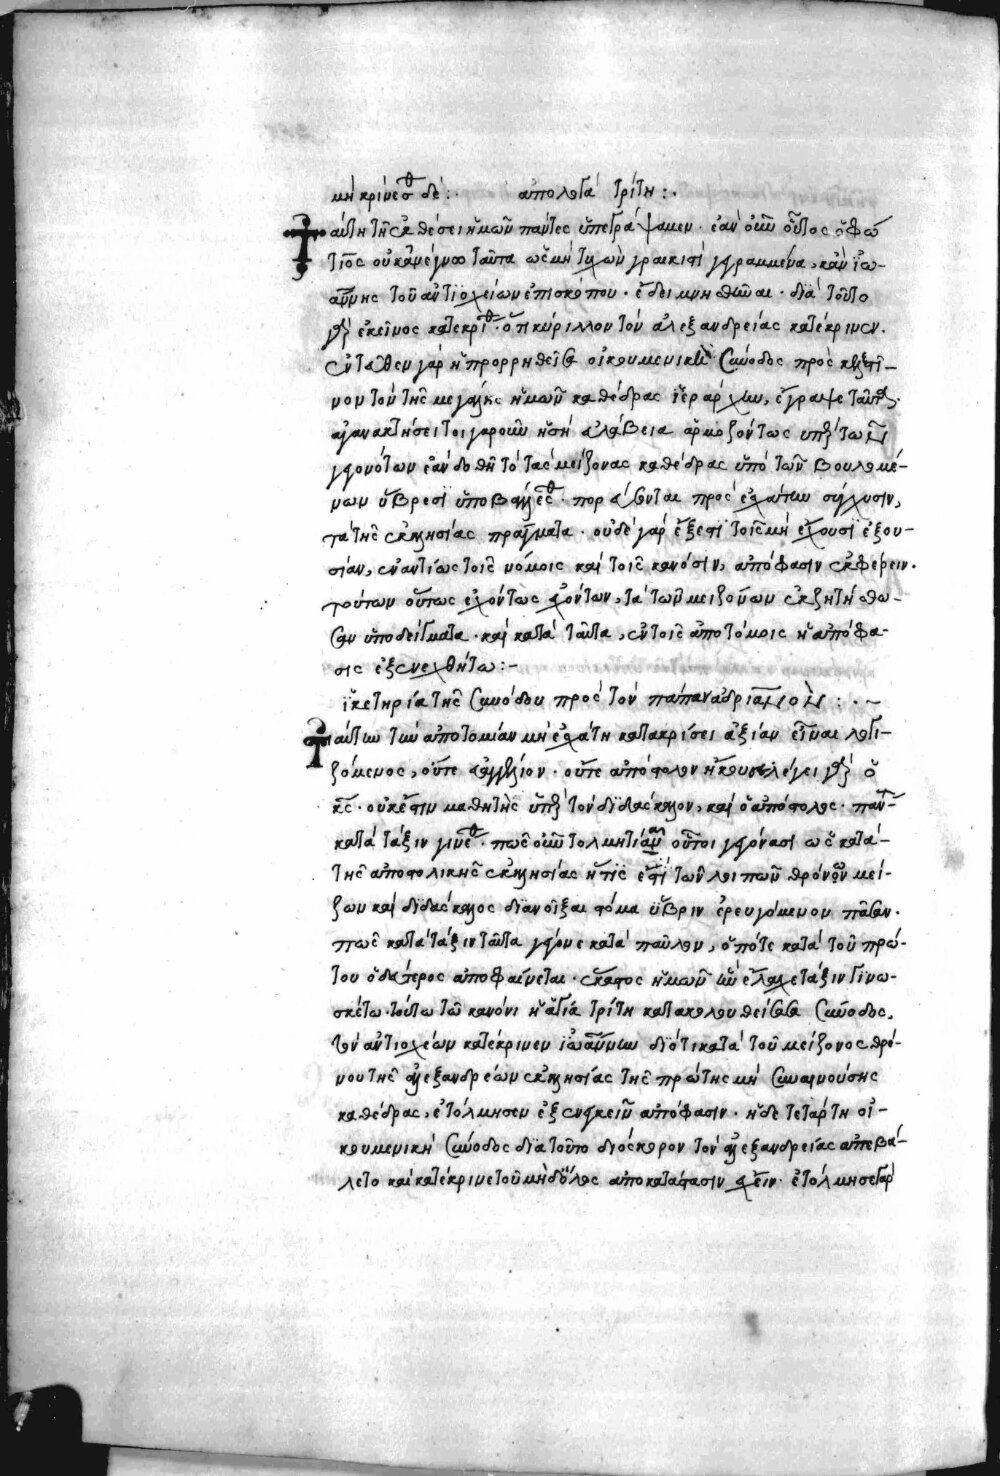 μὴ κρίνεσθαι δέ :· ἀπολογία τρίτη :·
Ταύτη τῇ ἐκθέσει ἡμῶν πάντες ὑπεγράψαμεν· ἐὰν οὖν οὗτος ὁ φώ-
τιος οὐκ ἀνέγνω ταῦτα ὡς μὴ τυχὸν γραικιστὶ γεγραμμένα, κἂν ἰω-
άννης τοῦ ἀντιοχείων ἐπισκόπου· ἔδει μνησθῆναι· διὰ τοῦτο
γὰρ ἐκεῖνος κατεκρίθη· ὅτι κύριλλον τὸν ἀλεξανδρείας κατέκρινεν.
ἐνταῦθεν γὰρ ἡ προρρηθεῖσα οἰκουμενικὴ σύνοδος πρὸς κελεστῖ-
νον τὸν τῆς μεγάλης ἡμῶν καθέδρας ἱεράρχην, ἔγραψε ταῦτα·
ἀγανακτήσει τοιγαροῦν ἡ σὴ εὐλάβεια ἁρμοζόντως ὑπὲρ τῶν
γεγονότων ἐὰν δοθῇ τὸ τὰς μείζονας καθέδρας ὑπὸ τῶν βουλομέ-
νων ὕβρεσι ὑποβάλλεσθαι· πορεύονται πρὸς ἐσχάτην σύγχυσιν,
τὰ τῆς ἐκκλησίας πράγματα· οὐδὲ γὰρ ἔξεστι τοῖς μὴ ἔχουσι ἐξου-
σίαν, ἐναντίως τοῖς νόμοις καὶ τοῖς κανόσιν, ἀπόφασιν ἐκφέρειν.
τούτων οὕτως ἐχόντως ἐχόντων, τὰ τῶν μειζόνων ἐκζητήσθω-
σαν ὑποδείγματα· καὶ κατὰ ταῦτα, ἐν τοῖς ἀποτόμοις ἡ ἀπόφα-
σις ἐξενεχθήτω :-
ἱκετηρία τῆς συνόδου πρὸς τὸν πάπαν ἀδριανόν :·-
Ταύτην τὴν ἀποτομίαν μὴ ἐσχάτη κατακρίσει ἀξίαν εἶναι λογι-
ζόμενος, οὔτε εὐαγγέλιον· οὔτε ἀπόστολον ἤκουσε λέγει γὰρ ὁ
κς· οὐκ ἔστιν μαθητὴς ὑπὲρ τὸν διδάσκαλον, καὶ ὁ ἀπόστολος· πάντα
κατὰ τάξιν γινέσθω· πῶς οὖν τολμητίαν οὗτοι γεγόνασι ὡς κατὰ
τῆς ἀποστολικῆς ἐκκλησίας ἥτις ἐστὶ τῶν λοιπῶν θρόνων μεί-
ζων καὶ διδάσκαλος διανοῖξαι στόμα ὕβριν ἐρευγόμενον πᾶσαν.
πῶς κατὰ τάξιν ταῦτα γέγονε κατὰ παῦλον, ὁπότε κατὰ τοῦ πρώ-
του ὁ δεύτερος ἀποφαίνεται· ἕκαστος ἡμῶν ἣν ἔλαχε τάξιν γινω-
σκέτω· τούτω τῶ κανόνι ἡ ἁγία τρίτη κατακολουθεῖσασα σύνοδος.
τὸν ἀντιοχέων κατέκρινεν ἰωάννην διότι κατὰ τοῦ μείζονος θρό-
νου τῆς ἀλεξανδρέων ἐκκλησίας τῆς πρώτης μὴ συναινούσης
καθέδρας, ἐτόλμησεν ἐξενεγκεῖν ἀπόφασιν· ἡ δὲ τετάρτη οἰ-
κουμενικὴ σύνοδος διὰ τοῦτο διόσκορον τὸν ἀλεξανδρείας ἀπεβά-
λετο καὶ κατέκρινε τοῦ μηδόλως ἀποκατάστασιν ἔχειν· ἐτόλμησε γὰρ